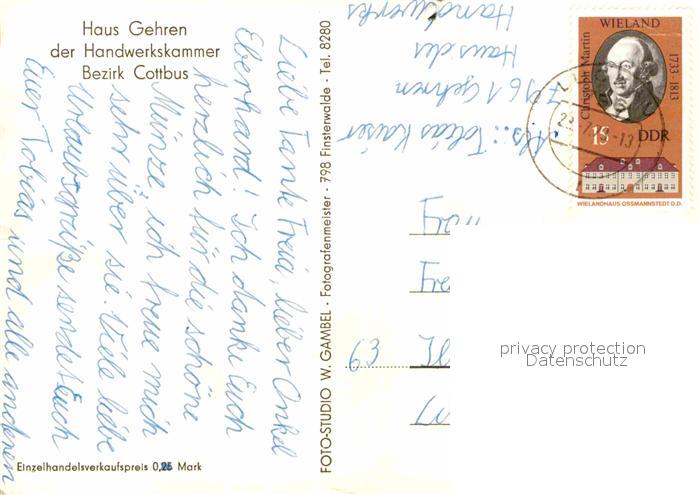 Haus Gehren
der Handwerkskammer
Bezirk Cottbus
Liebe Tante Freia, lieber Onkel
Eberhard! Ich danke Euch
herzlich für die schöne
Münze, ich freue mich
sehr über sie. Viele liebe
Urlaubsgrüße sendet Euch
Euer Tobias und alle anderen
Einzelhandelsverkaufspreis 0,25 Mark
FOTO-STUDIO W. GAMBEL · Fotografenmeister · 798 Finsterwalde · Tel. 8280
Abs.: Tobias Kaiser
7961 Gehren
Haus des
Handwerks
Christoph Martin
WIELAND
1733-1813
DDR
WIELANDHAUS OSSMANNSTEDT D.D.
63
privacy protection
Datenschutz